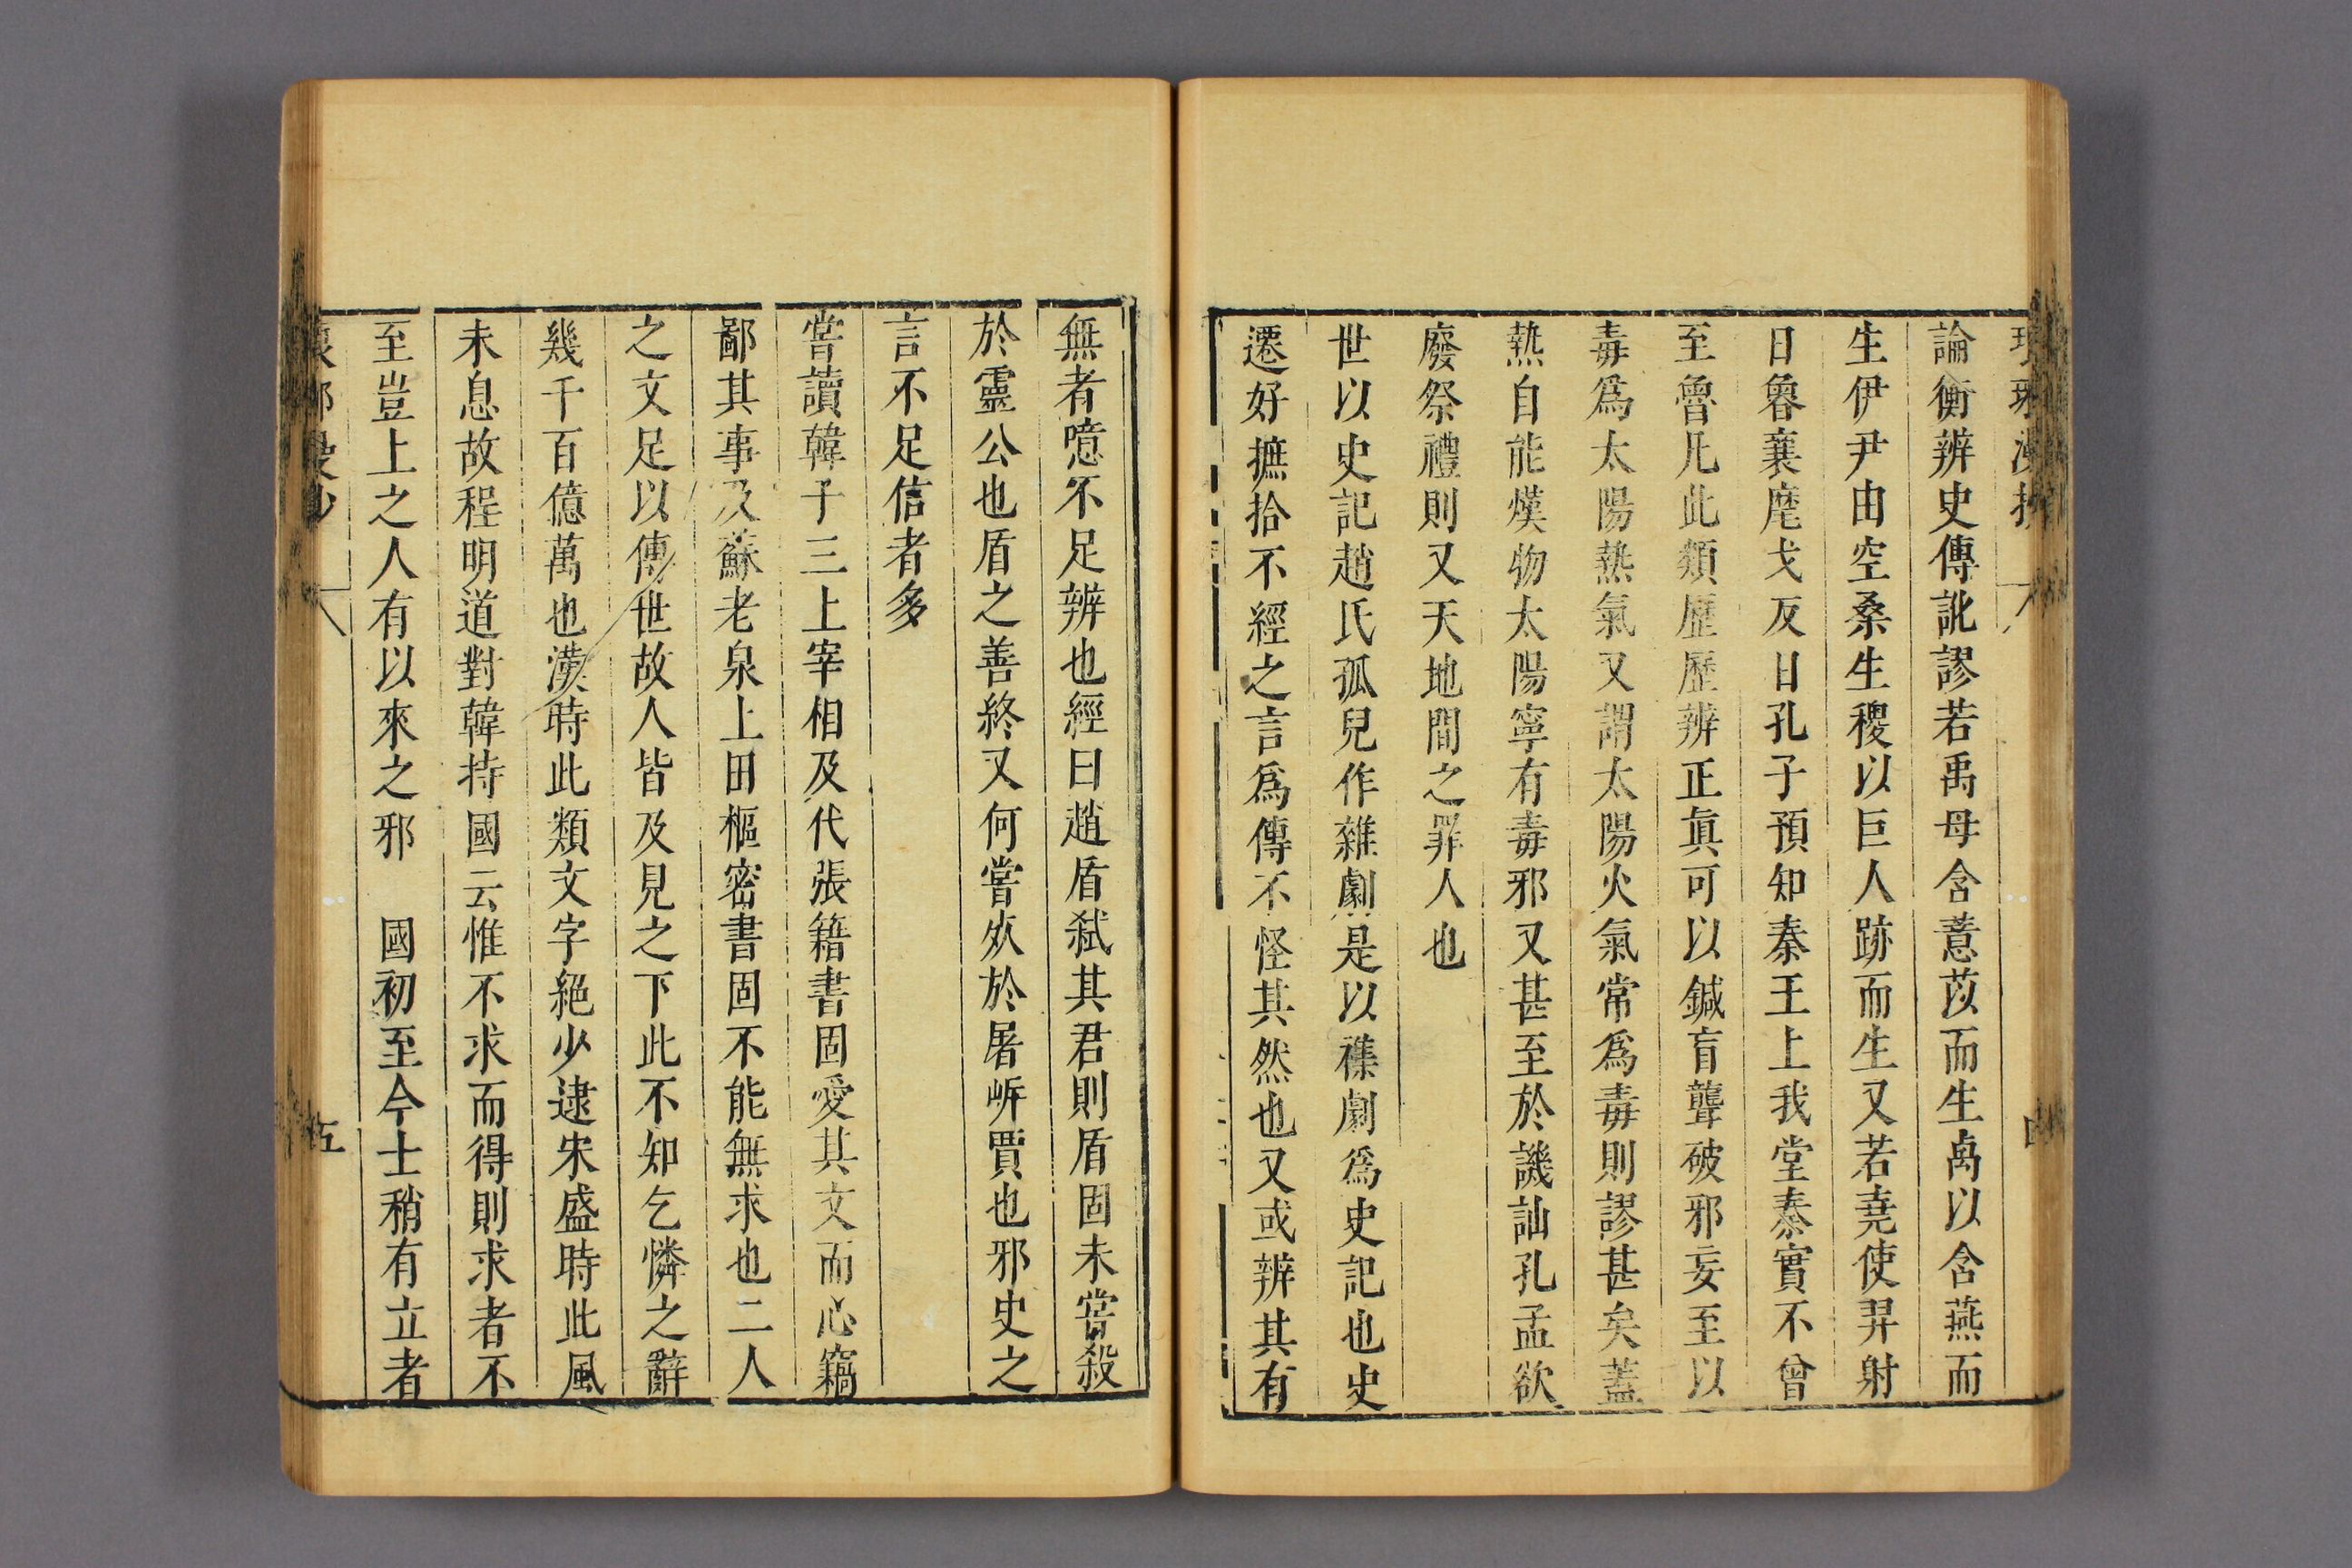 論衡辨史傳訛謬若禹母含薏苡而生禼以含燕而
生伊尹由空桑生稷以巨人跡而生又若堯使羿射
日魯襄麾戈反日孔子預知秦王上我堂秦實不曾
至魯凡此類歷歷辨正眞可以鍼盲聾破邪妄至以
毒爲太陽熱氣又謂太陽火氣常爲毒則謬甚矣蓋
熱自能熯物太陽寧有毒邪又甚至於譏訕孔孟欲
廢祭禮則又天地間之罪人也
世以史記趙氏孤兒作雜劇是以襍劇爲史記也史
遷好摭拾不經之言爲傳不怪其然也又或辨其有
無者噫不足辨也經曰趙盾弑其君則盾固未嘗殺
於靈公也盾之善終又何嘗攽於屠岍賈也邪史之
言不足信者多
嘗讀韓子三上宰相及代張籍書固愛其文而心竊
鄙其事及蘇老泉上田樞密書固不能無求也二人
之文足以傳世故人皆及見之下此不知乞憐之辭
幾千百億萬也漢時此類文字絕少逮宋盛時此風
未息故程明道對韓持國云惟不求而得則求者不
至豈上之人有以來之邪　國初至今士稍有立者
五